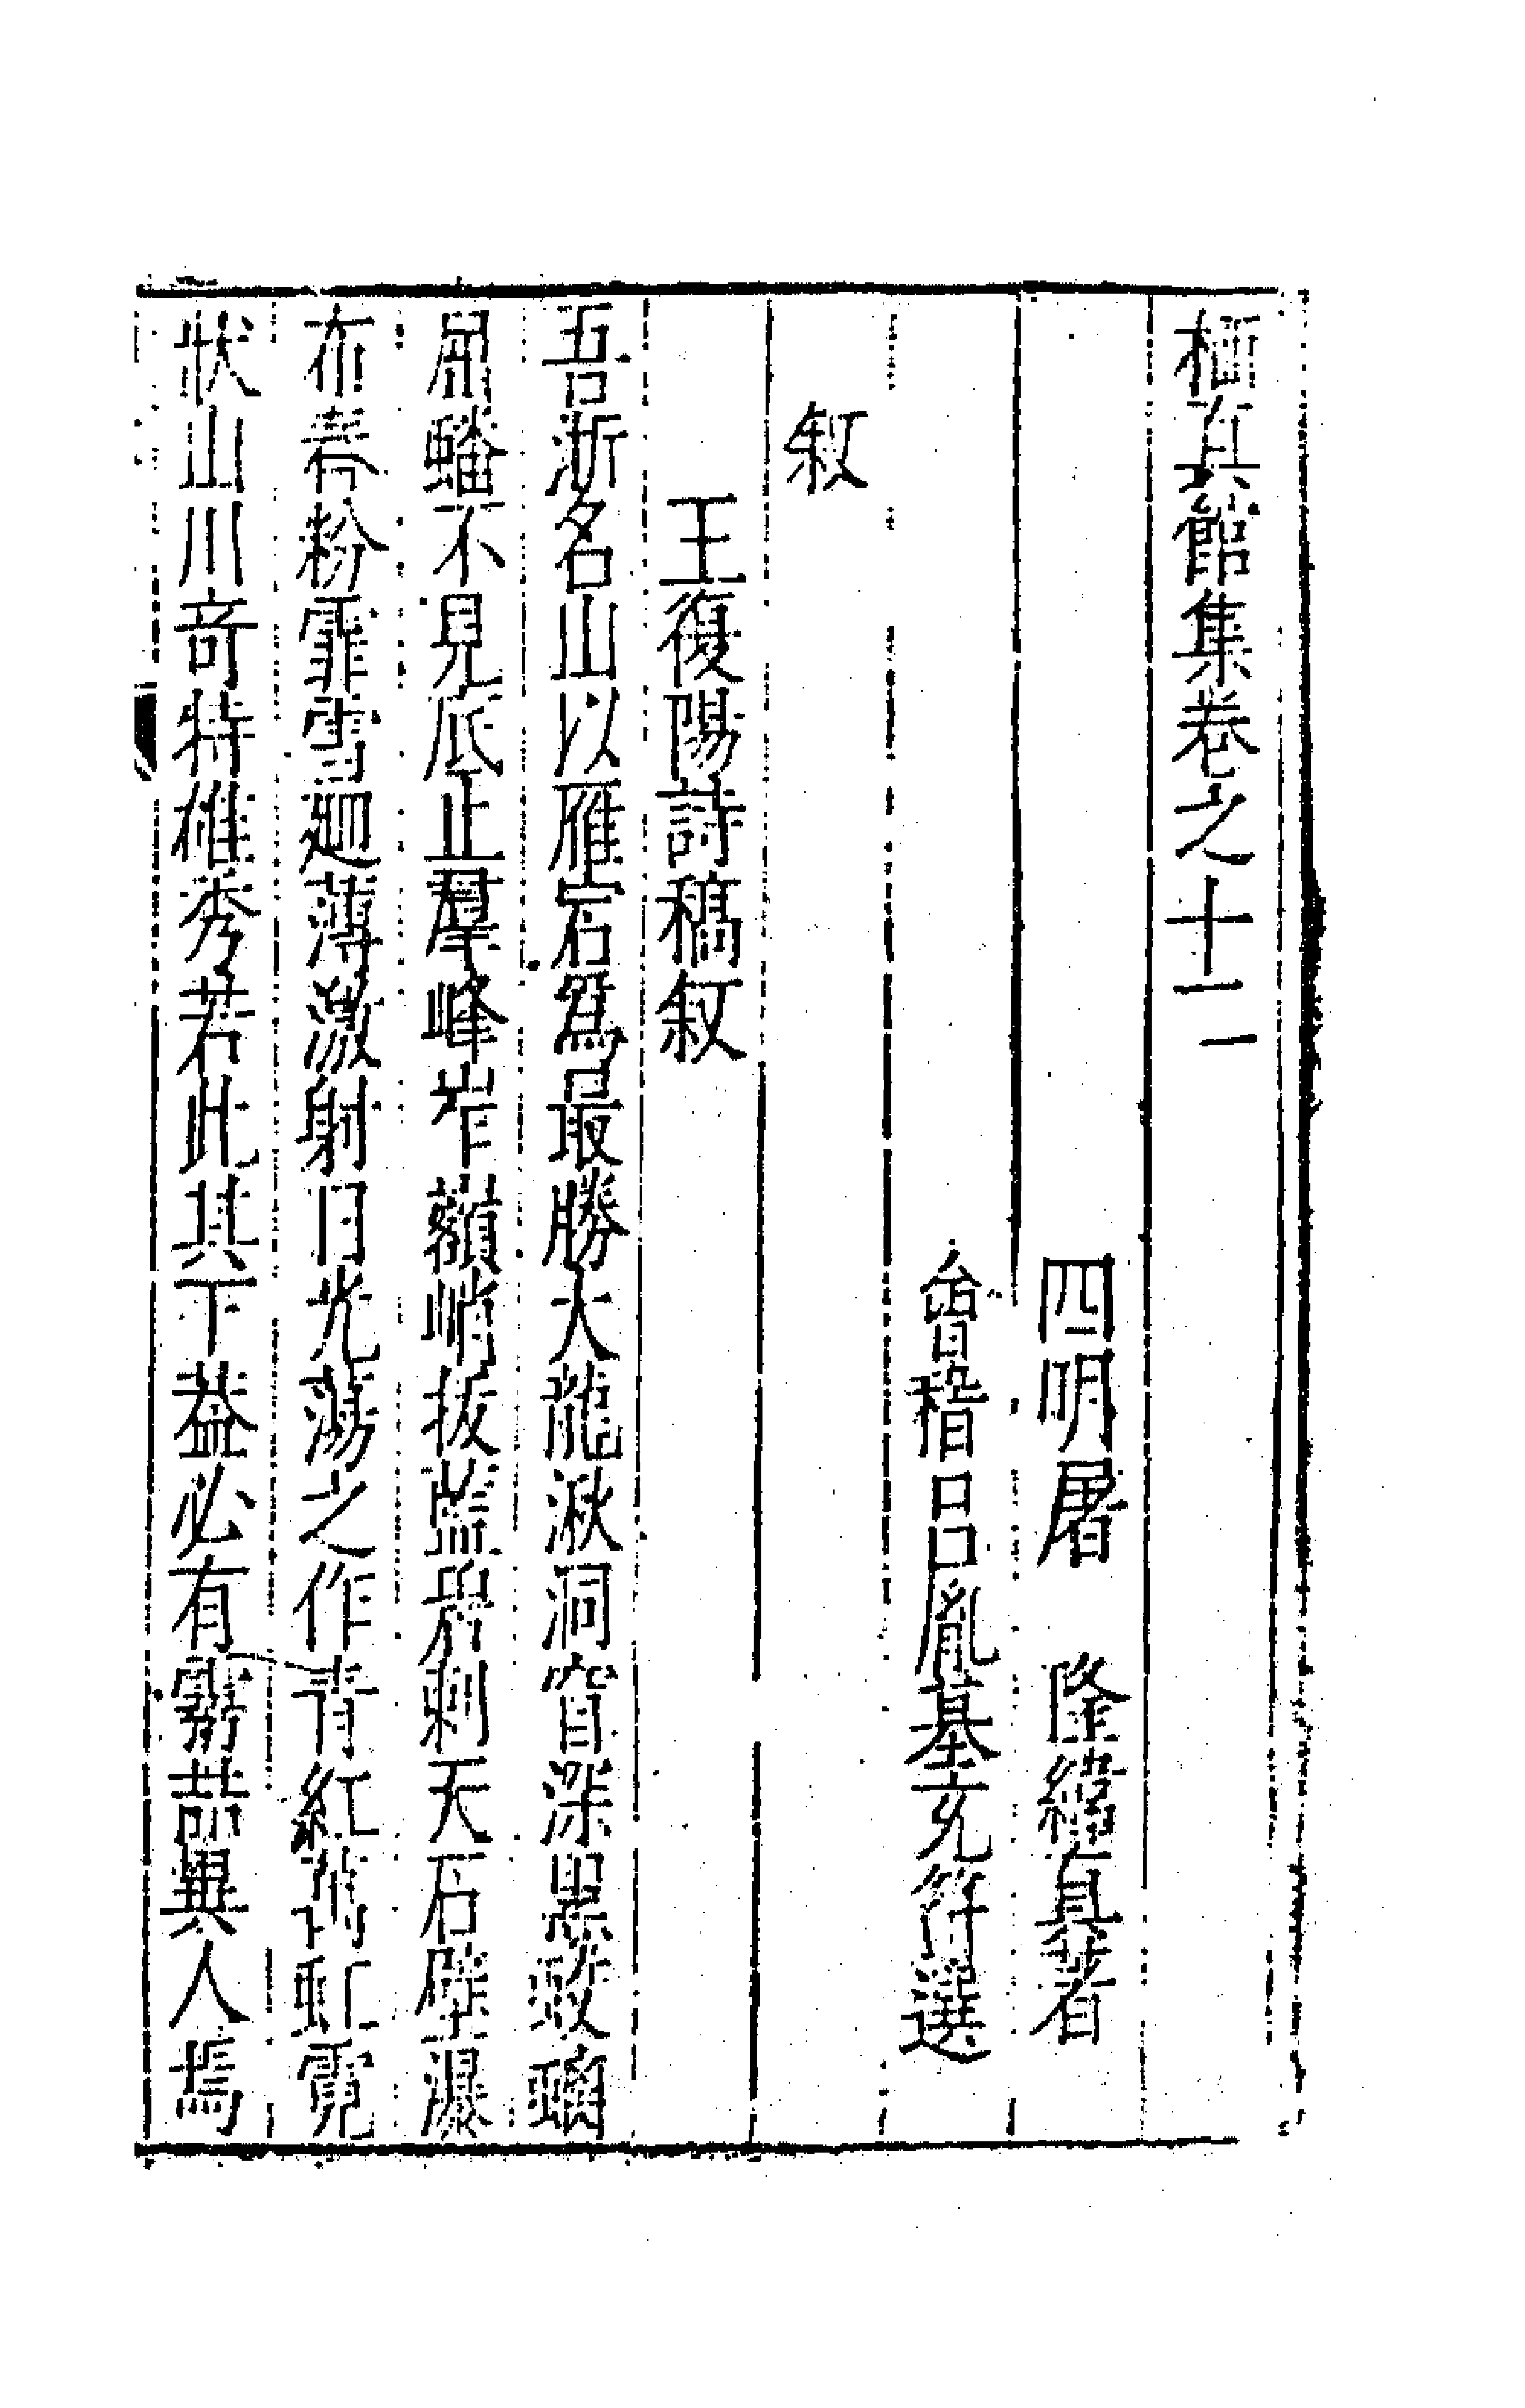 栖真館集卷之十二
四明屠　隆緯真著
會稽呂胤基玄符選
叙
王復陽詩稿叙
吾浙名山以雁宕爲最勝大龍湫洞窅深黑蛟螭
屈蟠不見底止羣峰岝峭拔藍刺天石壁瀑
布舂粉霏雪廻薄激射日光蕩之作青紅虹霓
狀山川奇特雄秀若此其下葢必有霛喆異人焉